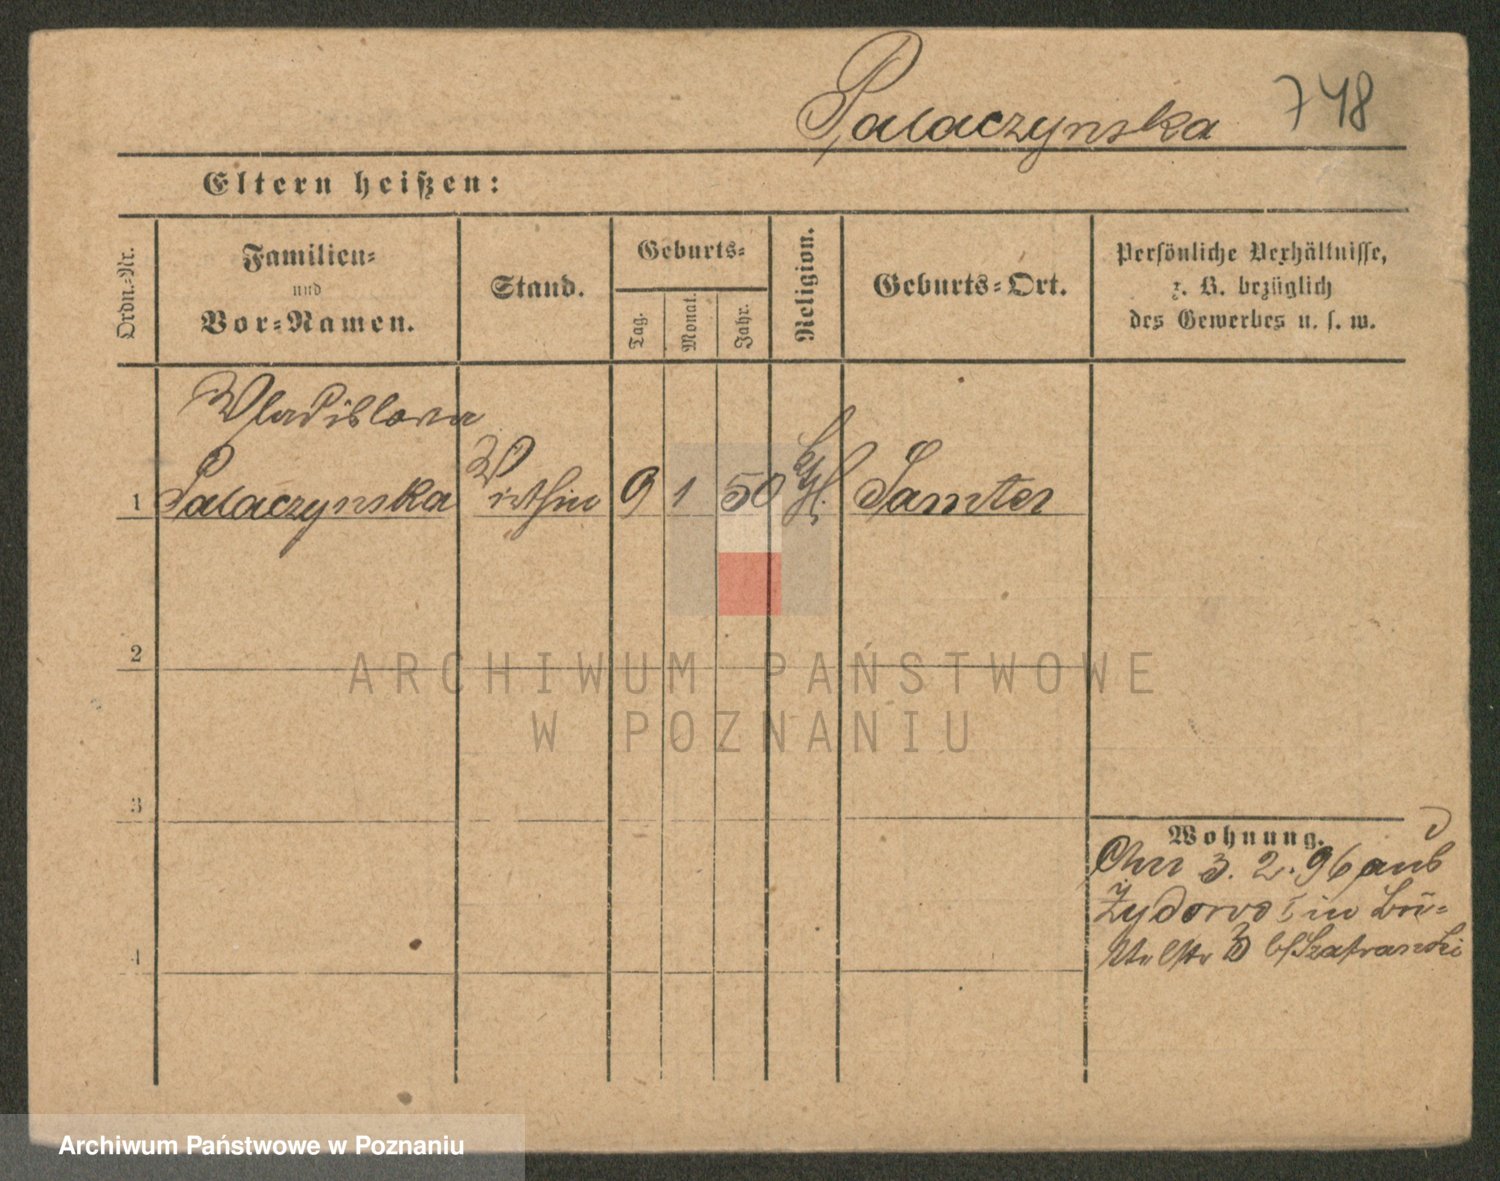 Palaczynska 748
Eltern heißen:
Ordn.-Nr.
Familien-
und
Vor-Namen.
Stand.
Geburts-
Tag.
Monat.
Jahr.
Religion.
Geburts-Ort.
Persönliche Verhältnisse,
z. B. bezüglich
des Gewerbes u. s. w.
Wladislawa
1 Palaczynska Wirthin 9 1 50 kth. Samter
2
3
4
Wohnung.
3. 2. 96 aus
Zydowo in
b/Szafranski
ARCHIWUM PAŃSTWOWE
W POZNANIU
Archiwum Państwowe w Poznaniu